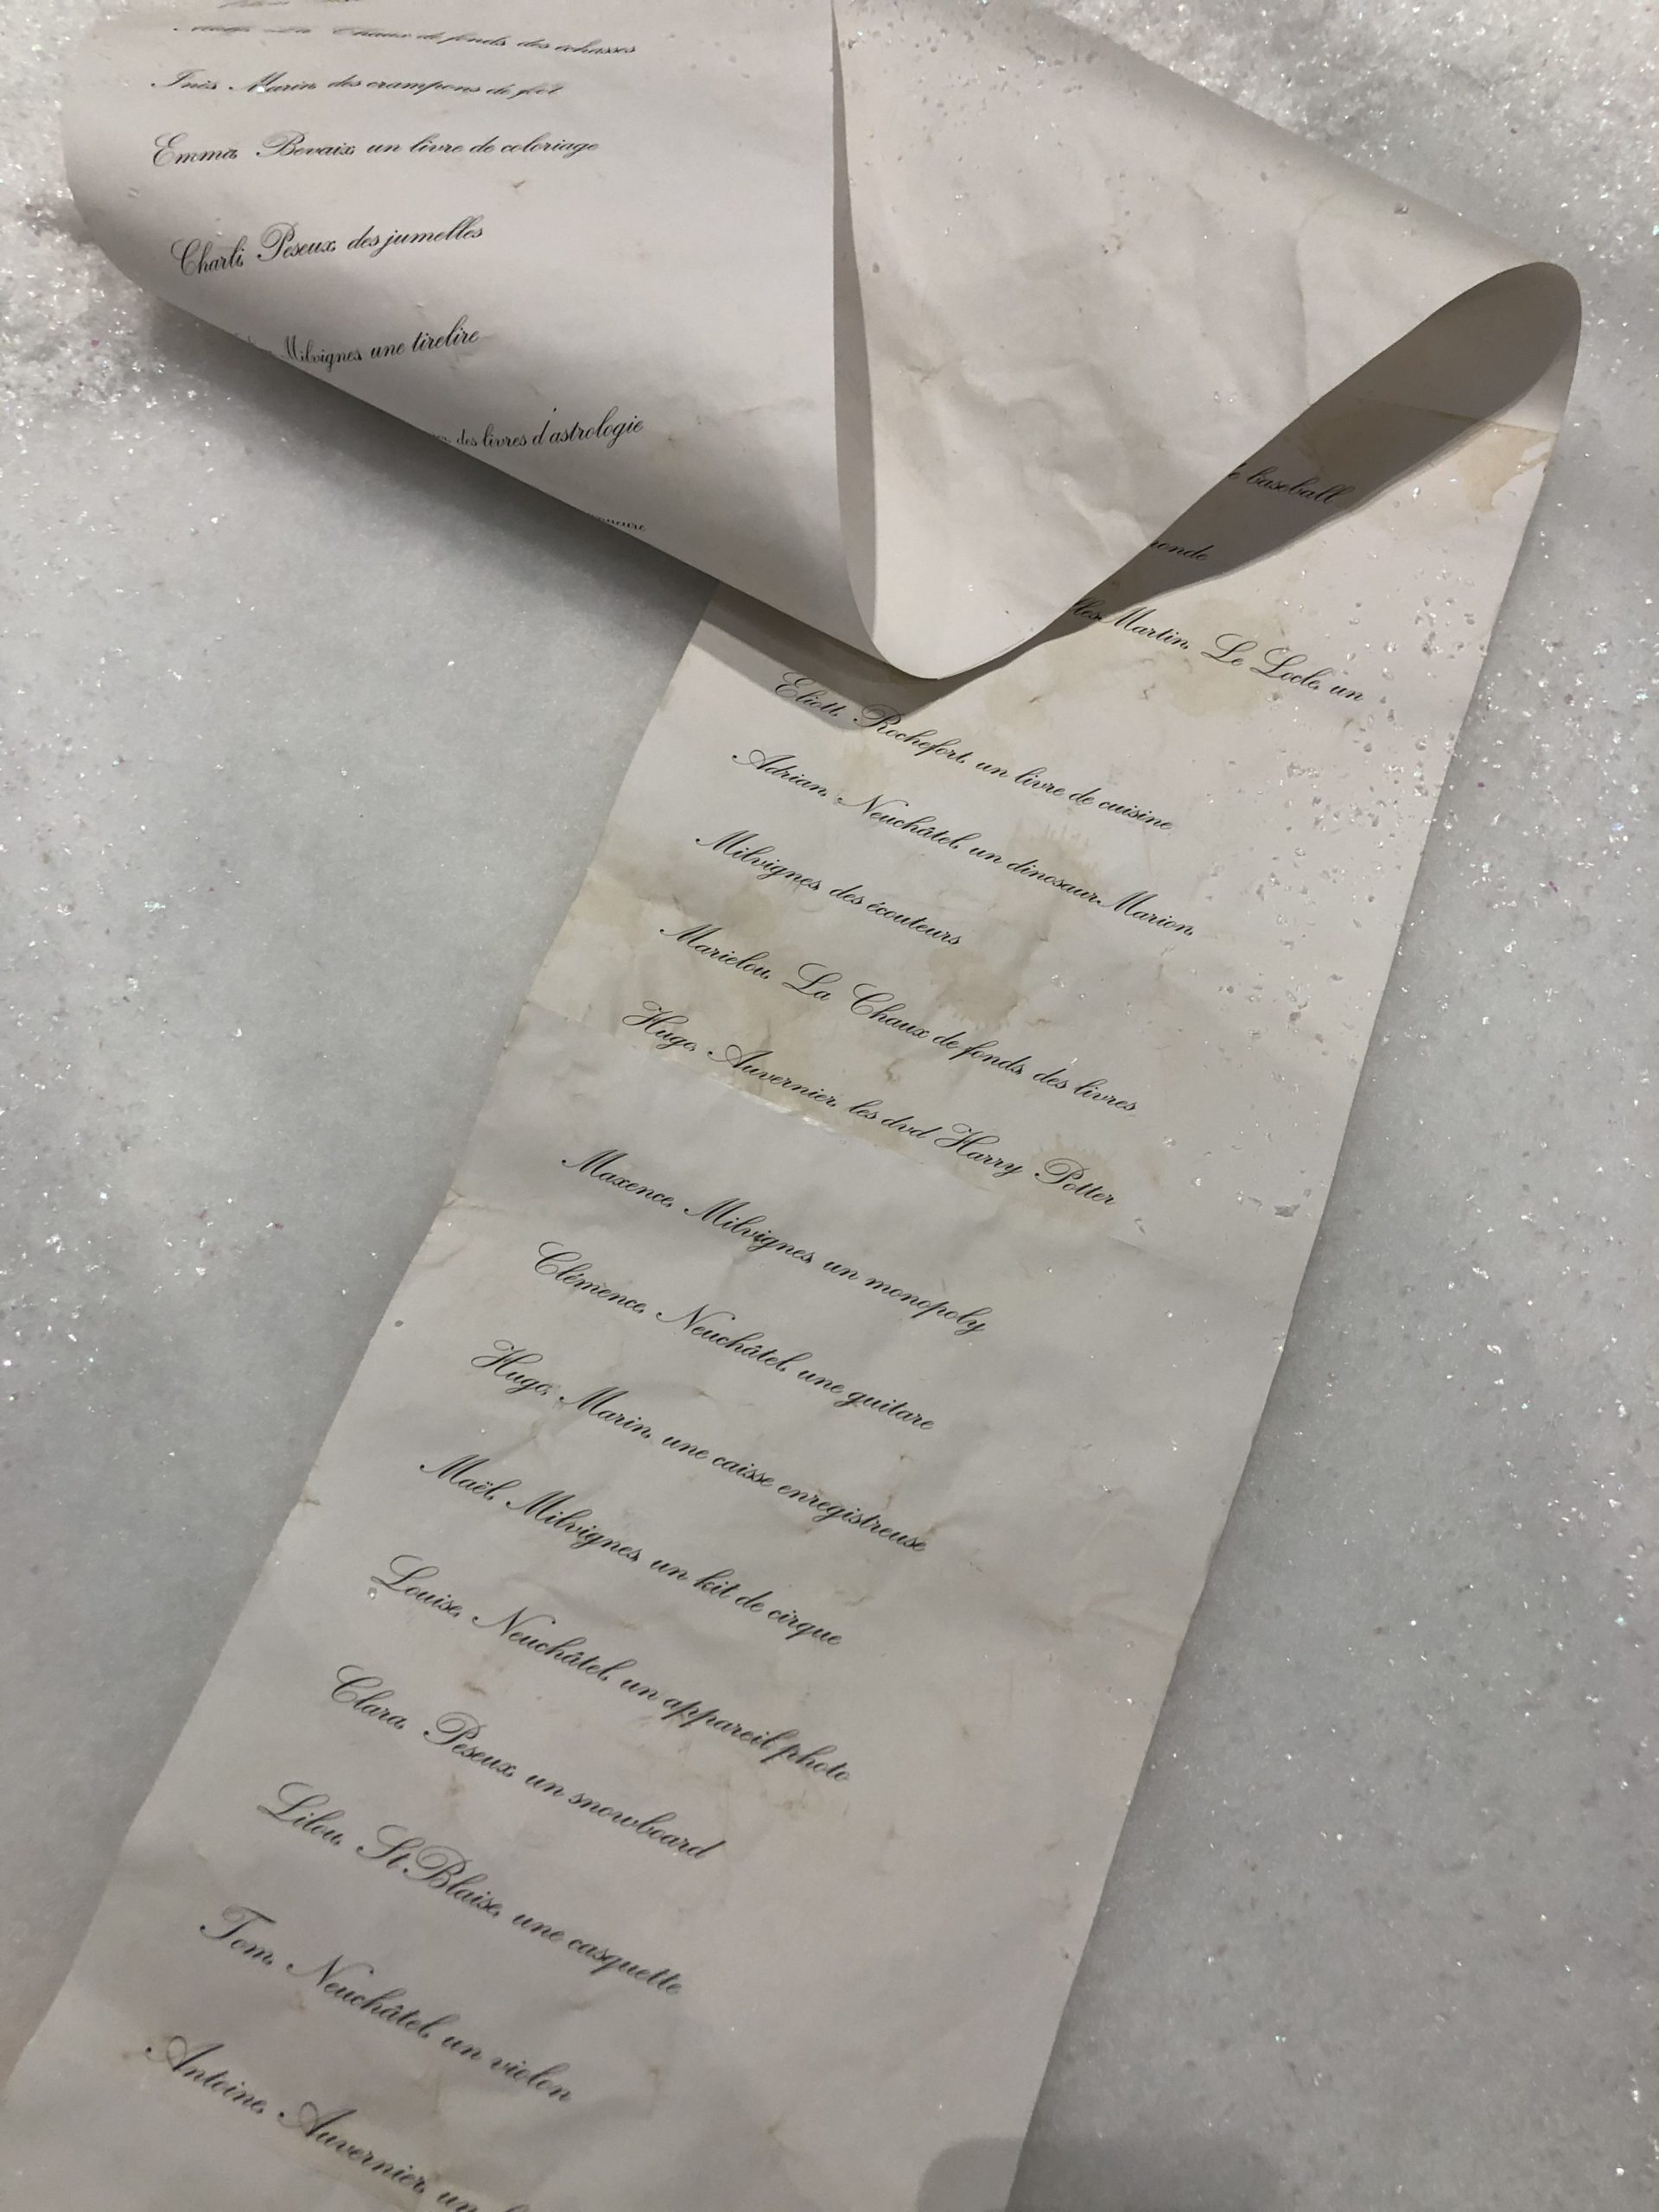 La Chaux de fonds des échasses
Inès, Marin, des crampons de foot
Emma, Bevaix, un livre de coloriage
Charli, Peseux, des jumelles
Milvignes une tirelire
des livres d'astrologie
baseball
Martin, Le Locle, un
Eliott, Rochefort, un livre de cuisine
Adrian, Neuchâtel, un dinosaur Marion,
Milvignes, des écouteurs
Marielou, La Chaux de fonds, des livres
Hugo, Auvernier, les dvd Harry Potter
Maxence, Milvignes, un monopoly
Clémence, Neuchâtel, une guitare
Hugo, Marin, une caisse enregistreuse
Maël, Milvignes, un kit de cirque
Louise, Neuchâtel, un appareil photo
Clara, Peseux, un snowboard
Lilou, St.Blaise, une casquette
Tom, Neuchâtel, un violon
Antoine, Auvernier, un